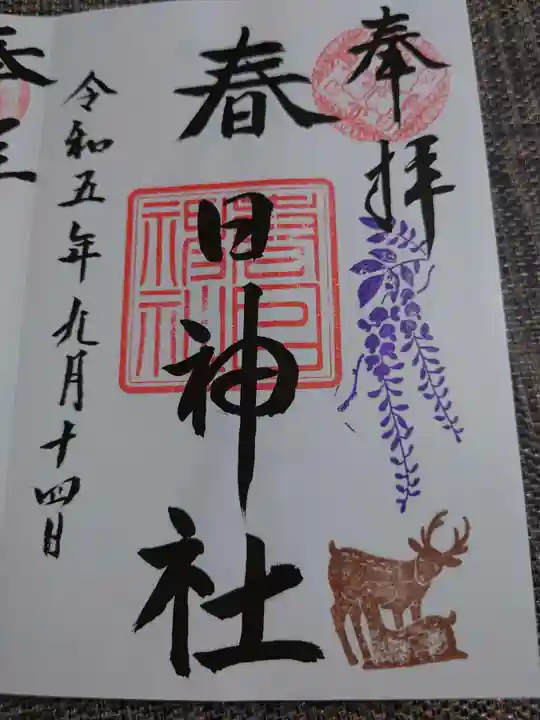 奉拝
春日神社
春日神社
令和五年九月十四日